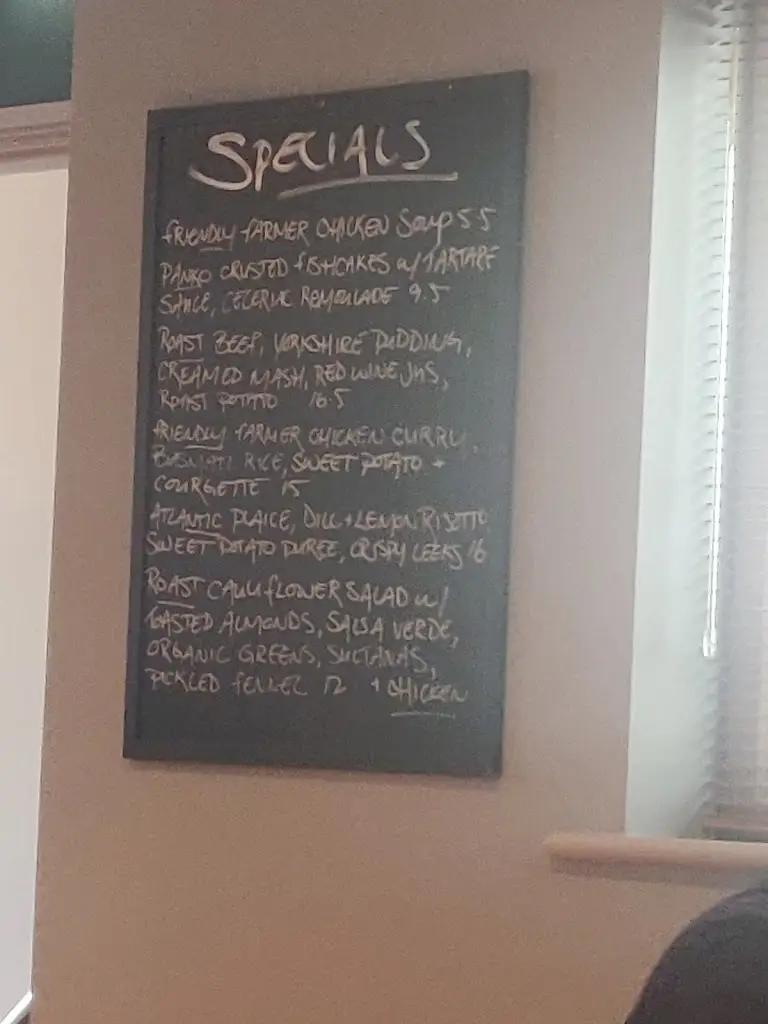 SPECIALS
FRIENDLY FARMER CHICKEN Soup 5.5
PANKO CRUSTED FISHCAKES w/ TARTARE
SAUCE, CELERIAC REMOULADE 9.5
ROAST BEEF, YORKSHIRE PUDDING,
CREAMED MASH, RED WINE JUS,
ROAST POTATO 16.5
FRIENDLY FARMER CHICKEN CURRY,
BASMATI RICE, SWEET POTATO +
COURGETTE 15
ATLANTIC PLAICE, DILL + LEMON RISOTTO
SWEET POTATO PUREE, CRISPY LEEKS 16
ROAST CAULIFLOWER SALAD w/
TOASTED ALMONDS, SALSA VERDE,
ORGANIC GREENS, SULTANAS,
PICKLED FENNEL 12 + CHICKEN